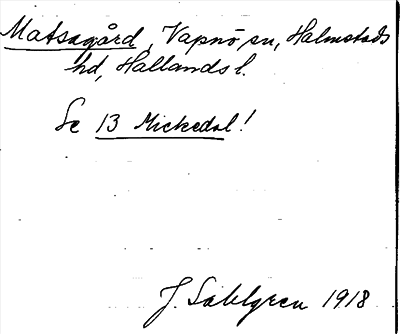 Matsagård, Vapnö sn, Halmstads
hd, Hallands l.
Se 13 Mickedal!
J. Sahlgren 1918